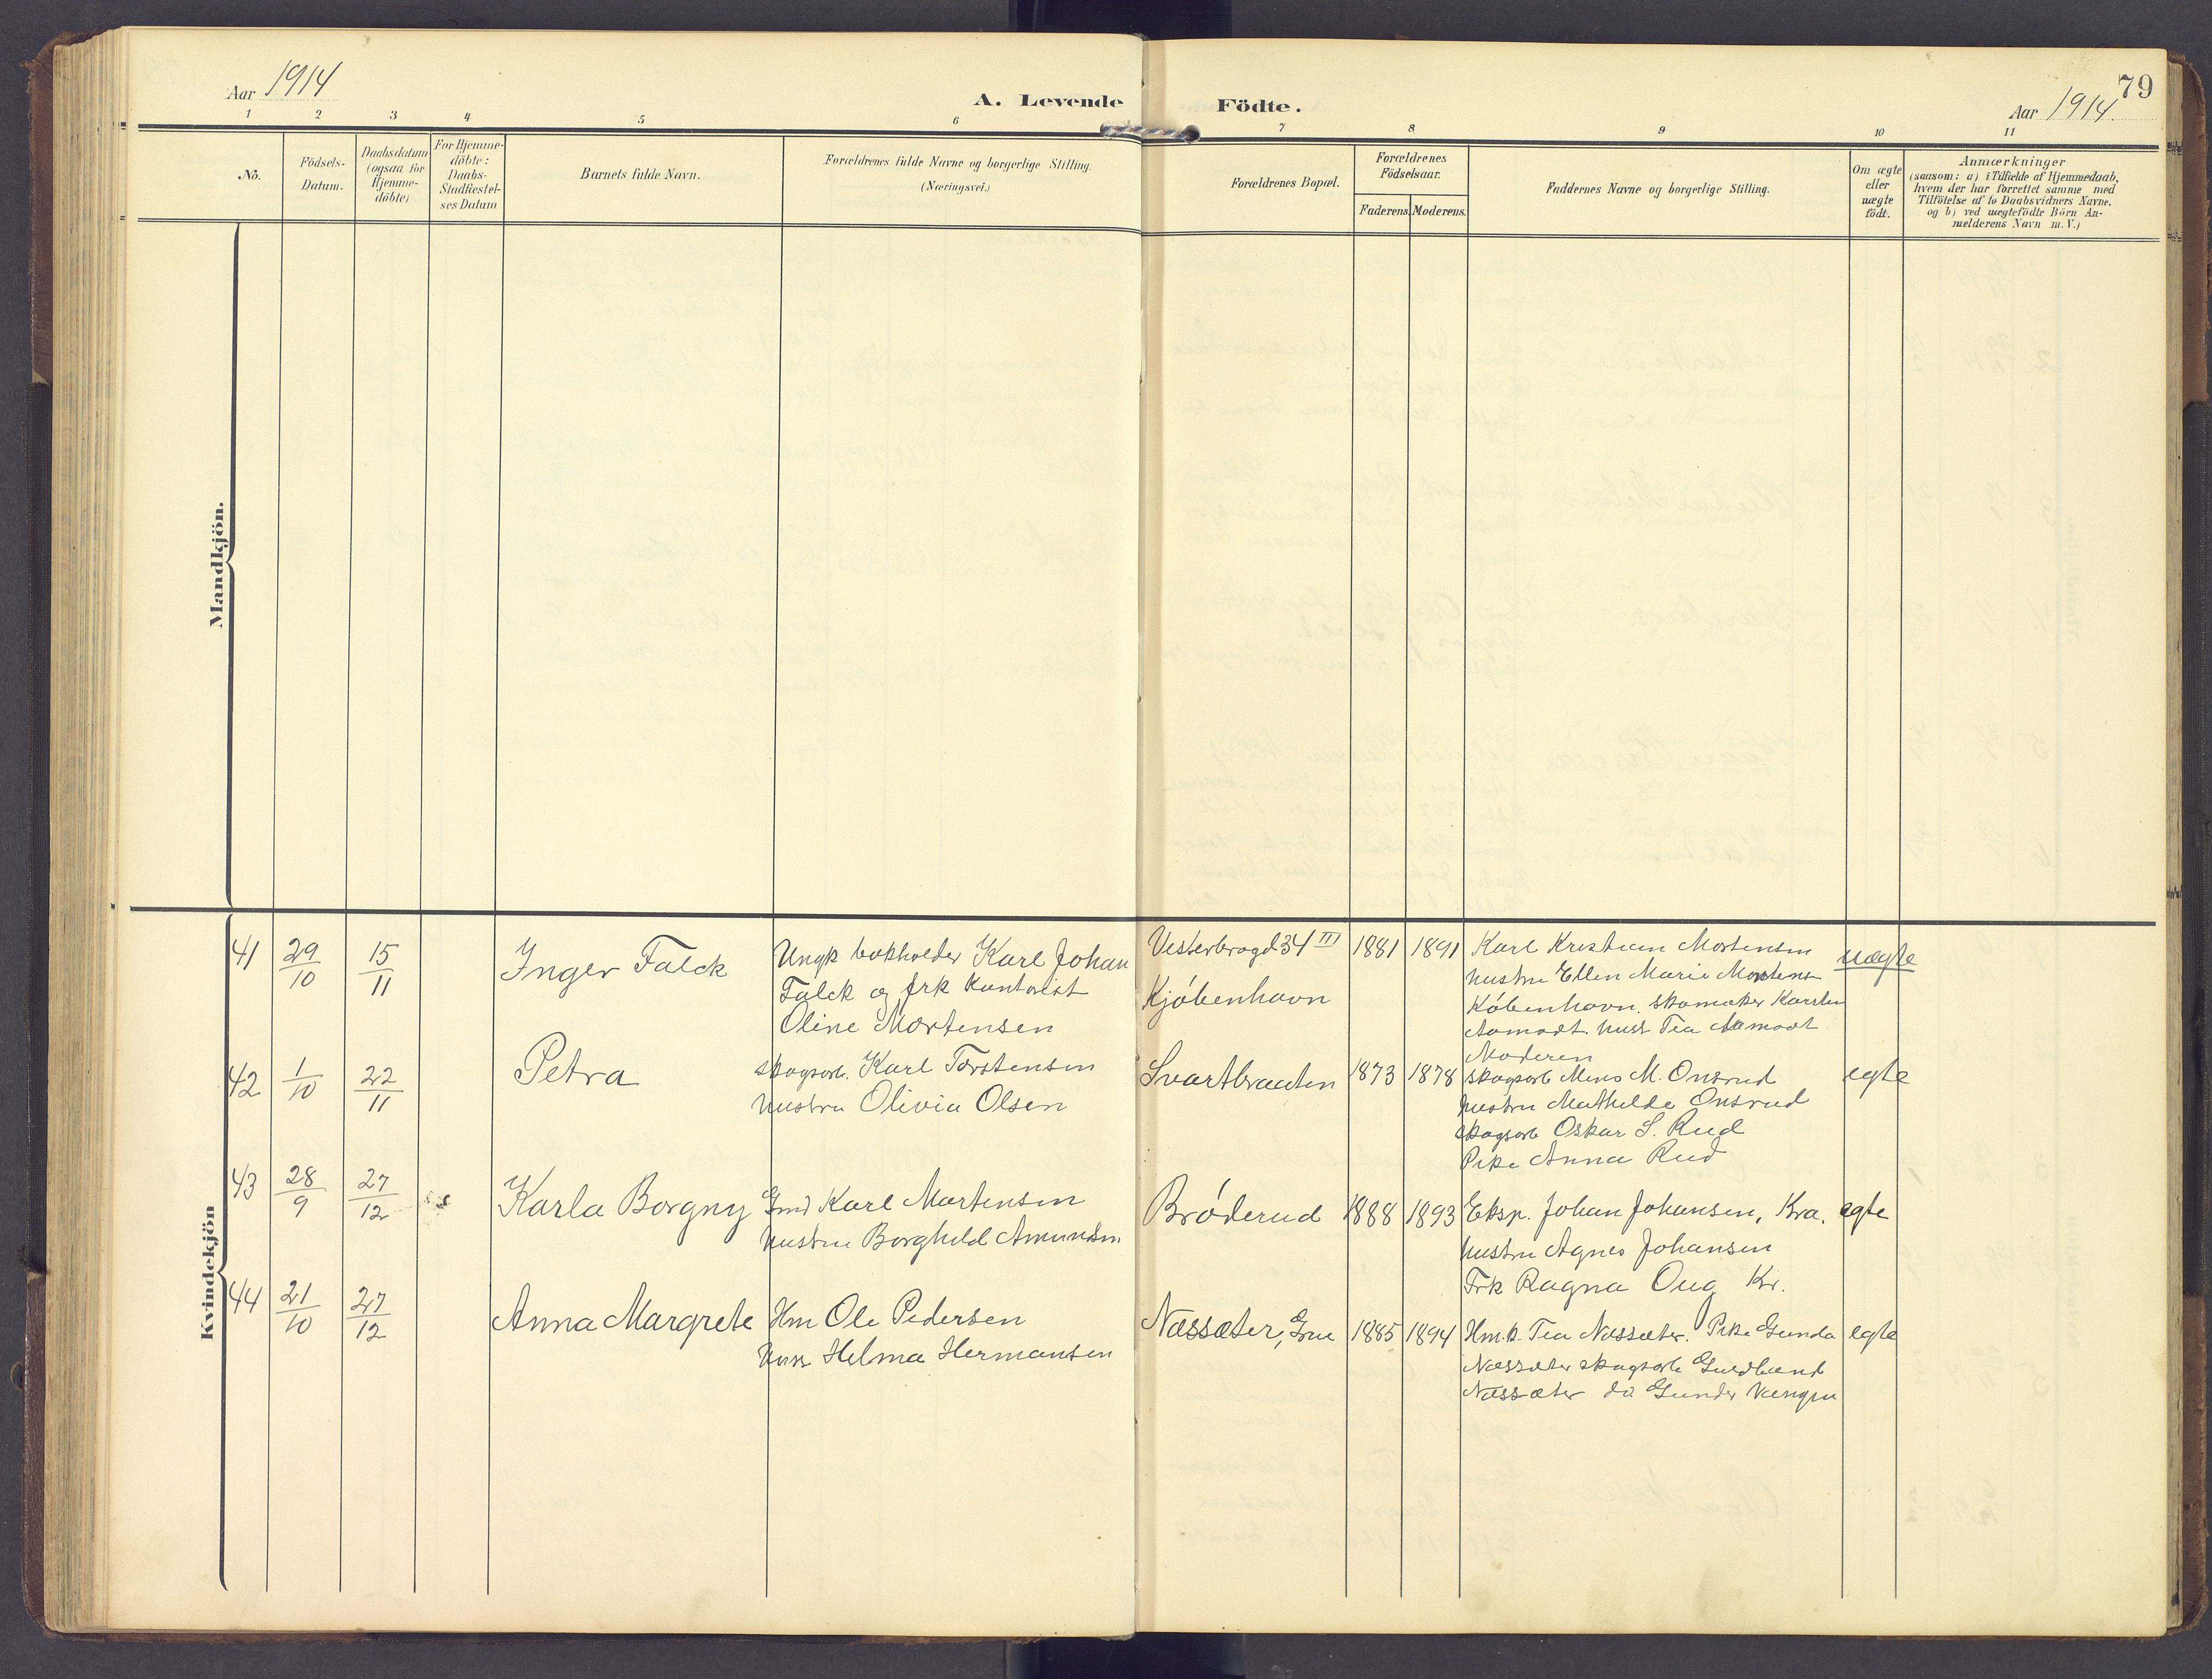 Aar 1914
A. Levende Födte.
Aar 1914
79
1 2 3 4 5 6 7 8 9 10 11
No.
Födsels-Datum.
Daabsdatum (ogsaa for Hjemme-döbte)
For Hjemme-döbte: Daabs-Stadfæstel-ses Datum
Barnets fulde Navn.
Forældrenes fulde Navne og borgerlige Stilling. (Næringsvei.)
Forældrenes Bopæl.
Forældrenes Födselsaar.
Faderens. Moderens.
Faddernes Navne og borgerlige Stilling.
Om ægte eller uægte födt.
Anmærkninger
(saasom: a) i Tilfælde af Hjemmedaab,
hvem der har forrettet samme med
Tilföielse af to Daabsvidners Navne.
og b) ved uægtefödte Börn An-
melderens Navn m. V.)
Mandkjön.
Kvindekjön
41 29/10 15/11 Inger Falck
Ungk bokholder Karl Johan
Falck og frk Kontorist
Oline Mortensen
Vesterbrogd 34 III
Kjöbenhavn
1881 1891
Karl Kristian Mortensen
hustru Ellen Marie Mortensen
København. skomaker Karsten
Aamodt. hust Tea Aamodt
Moderen
uægte
42 1/10 22/11 Petra
skogsarb. Karl Torstensen
hustru Olivia Olsen
Svartbraaten
1873 1878
skogsarb Mens M. Onsrud
hustru Mathilde Onsrud
skogsarb Oskar S. Rud
Pike Anna Rud
egte
43 28/9 27/12 Karla Borgny
Gmd Karl Martensen
hustru Borghild Amundsen
Bröderud
1888 1893
Eksp. Johan Johansen, Kra.
hustru Agnes Johansen
Frk Ragna Oug Kr.
egte
44 21/10 27/12 Anna Margrete
Hm Ole Pedersen
Hust Helma Hermansen
Næssæter, Grue
1885 1894
Hm.k. Tea Næssæter. Pike Gunda
Næssæter skogsarb Guldbrand
Næssæter do Gunder Vængen
egte